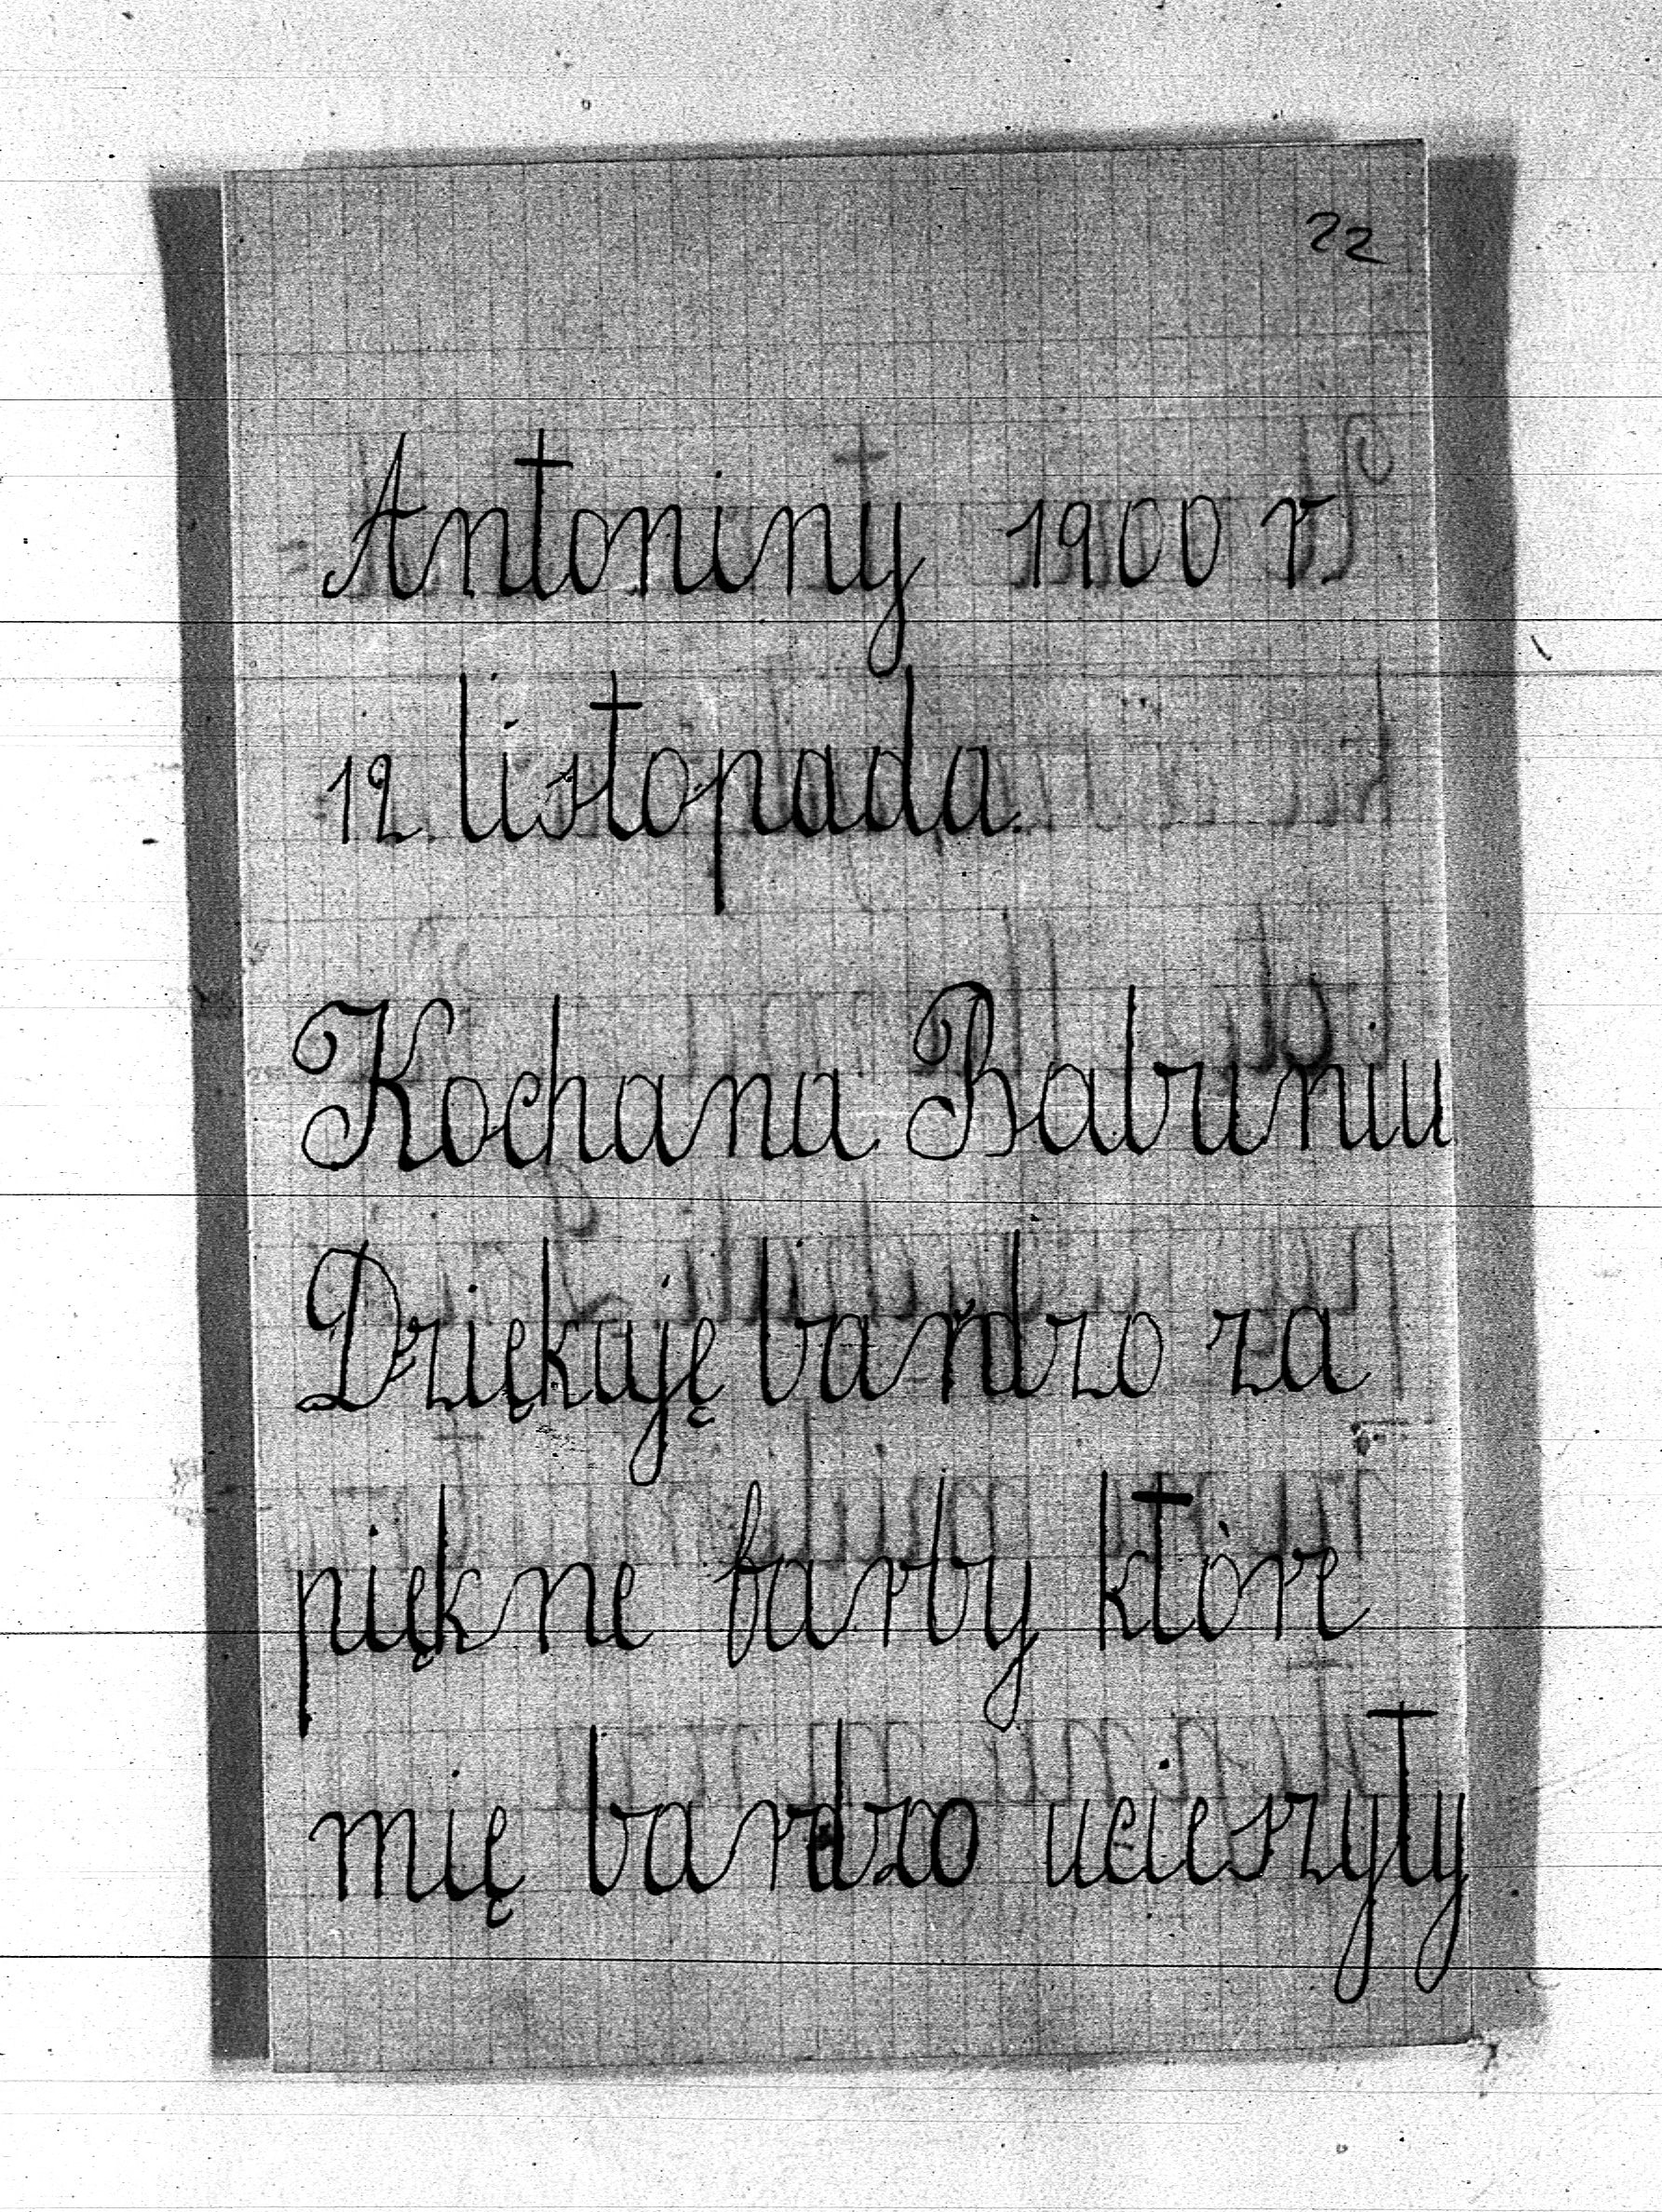 22
Antoniny 1900 r.
12 listopada.
Kochana Babuniu
Dziękuję bardzo za
piękne farby które
mię bardzo ucieszyły